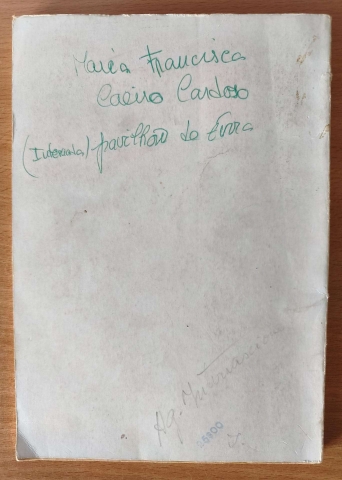 Maria Francisca
Caeiro Cardoso
(Internada) pavilhão de Évora
Ag.